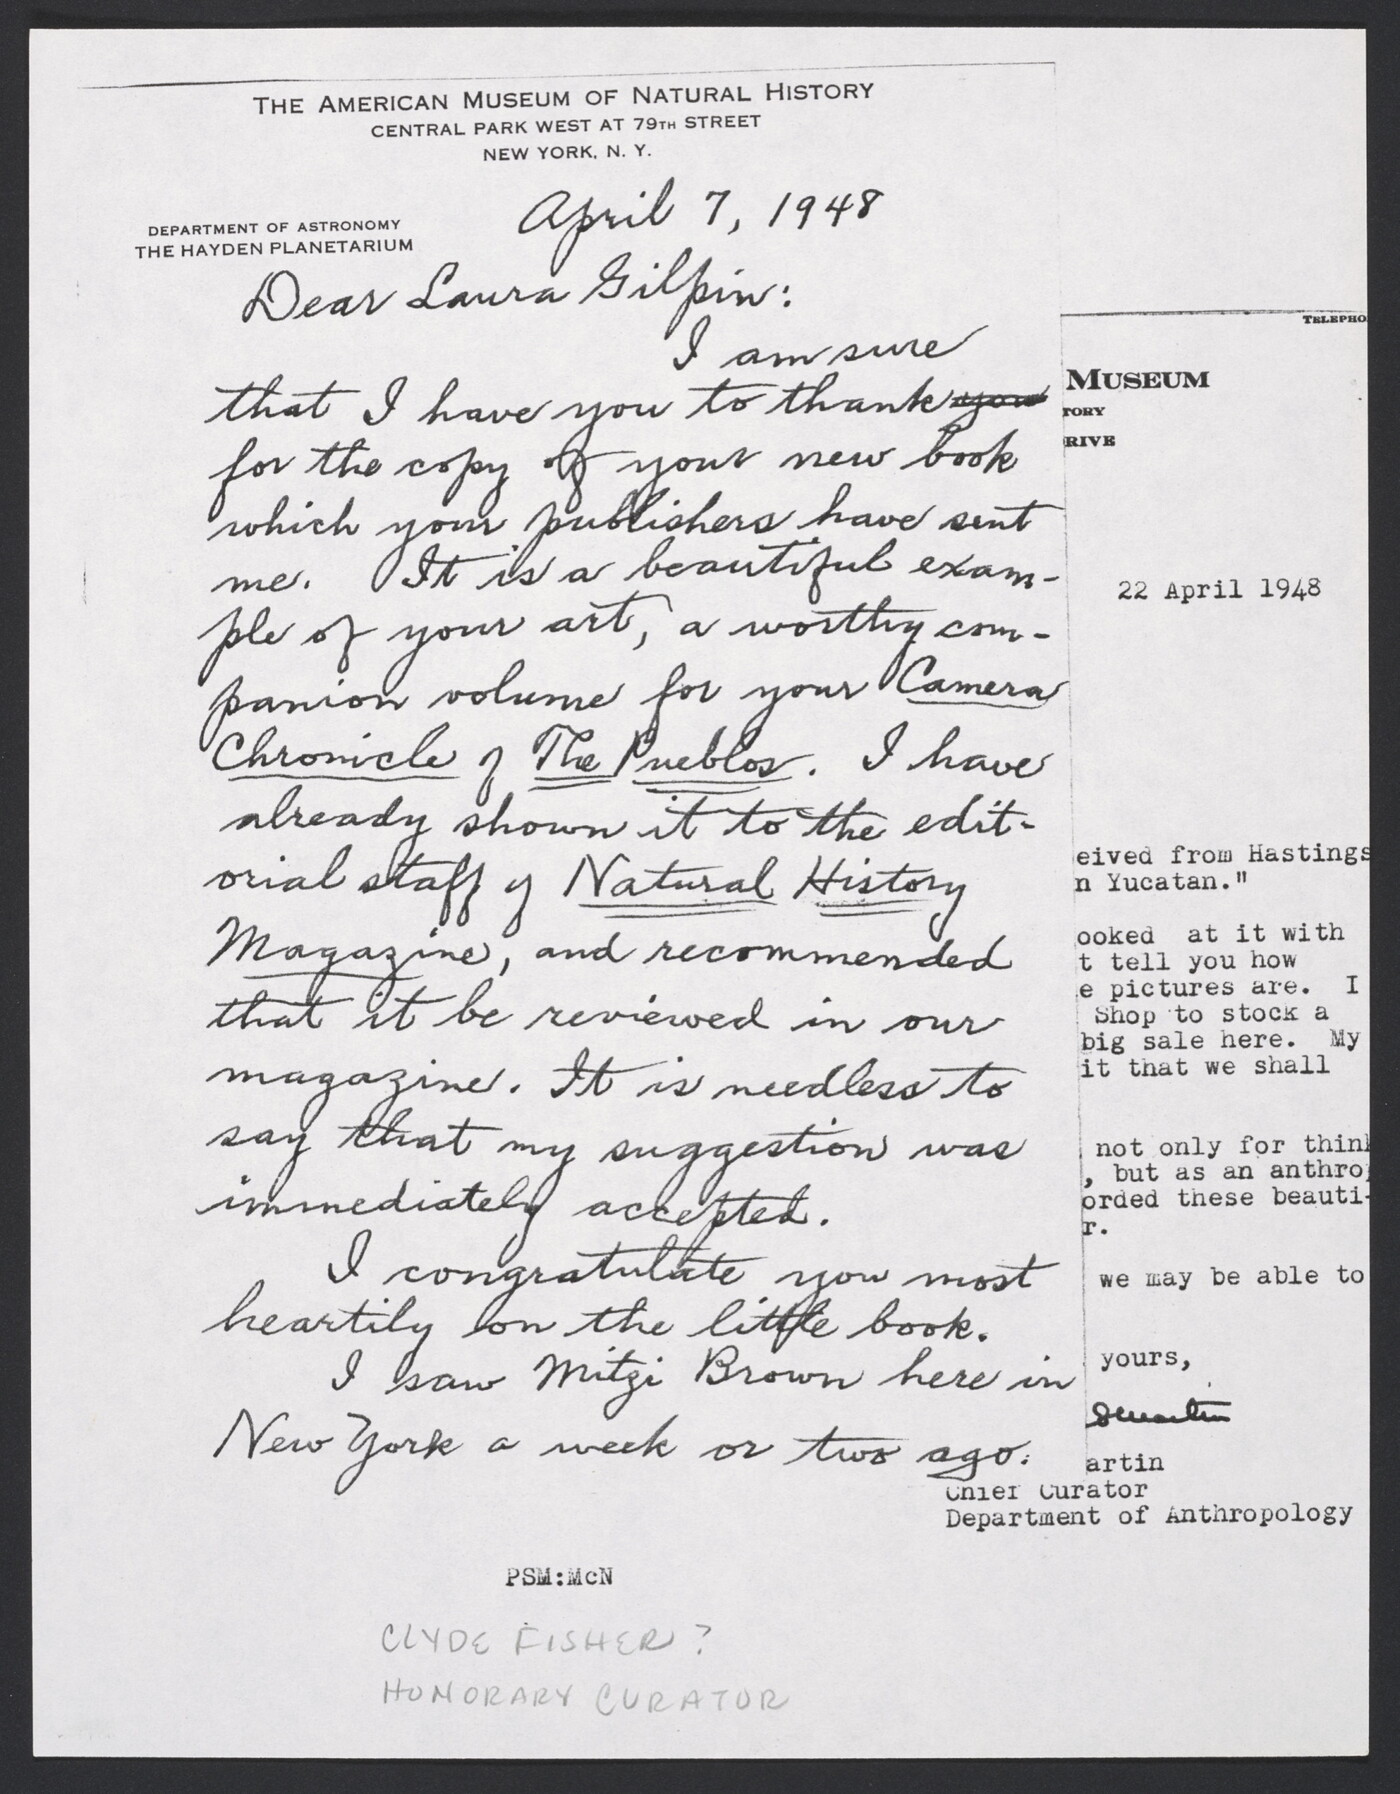 THE AMERICAN MUSEUM OF NATURAL HISTORY
CENTRAL PARK WEST AT 79TH STREET
NEW YORK, N. Y.
April 7, 1948
DEPARTMENT OF ASTRONOMY
THE HAYDEN PLANETARIUM
Dear Laura Gilpin:
I am sure
that I have you to thank you
for the copy of your new book
which your publishers have sent
me. It is a beautiful exam-
ple of your art, a worthy com-
panion volume for your Camera
Chronicle of The Pueblos. I have
already shown it to the edit-
orial staff of Natural History
Magazine, and recommended
that it be reviewed in our
magazine. It is needless to
say that my suggestion was
immediately accepted.
I congratulate you most
heartily on the little book.
I saw Mitzi Brown here in
New York a week or two ago.
TELEPHO
MUSEUM
TORY
RIVE
22 April 1948
eived from Hastings
n Yucatan."
ooked at it with
t tell you how
e pictures are. I
Shop to stock a
big sale here. My
it that we shall
not only for think
, but as an anthrop
orded these beauti-
r.
we may be able to
yours,
artin
Chief Curator
Department of Anthropology
PSM:McN
CLYDE FISHER?
HONORARY CURATOR